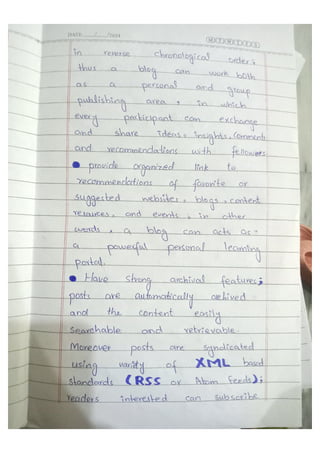 DATE / /202
in reverse chronological order;
thus a blog can work both
as a personal and group
publishing area, in which
every participant can exchange
and share ideas, insights, comments
and recommendations with fellowers
● provide organized link to
recommendations of favorite or
suggested websites, blogs, content
resources, and events, in other
words, a blog can acts as:
a powerful personal learning
portal.
● Have strong archival features;
posts are automatically archived
and the content easily
searchable and retrievable.
Moreover posts are syndicated
using varity of XML based
standards (RSS or Atom feeds);
readers interested can subscribe